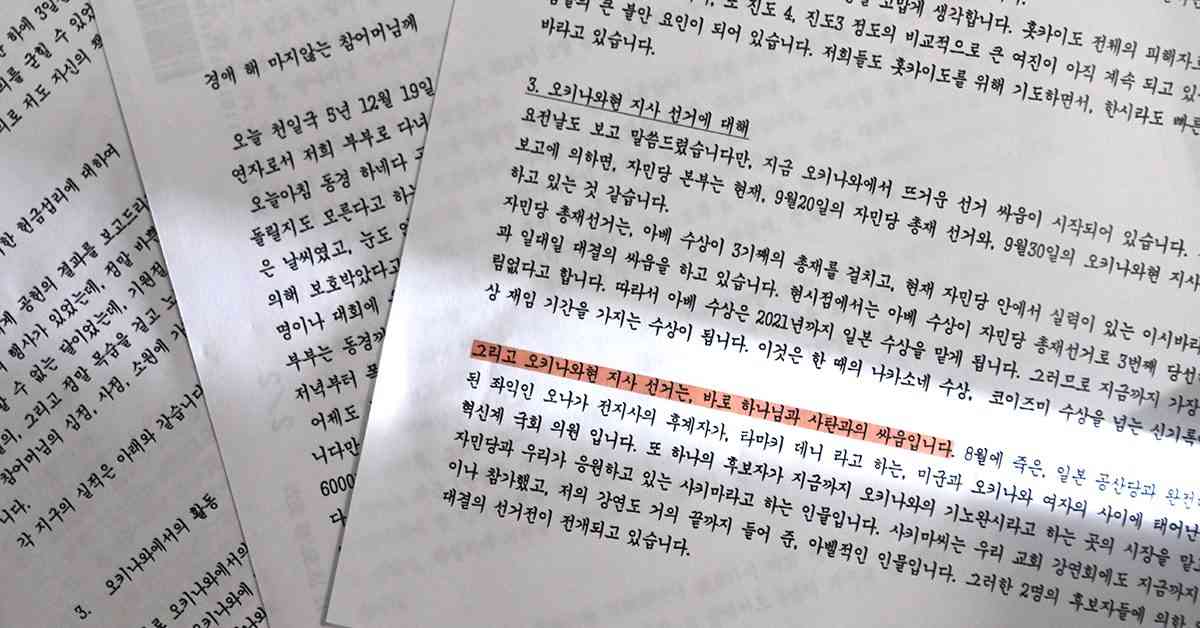 하에 3일
를 굳힐 수 있었
로 저도 자신의
한 헌금섭리에 대하여
게 공헌의 결과를 보고드리
행사가 있었는데, 정말 바쁜
할 수 없는 달이었는데, 기원절
의, 그리고 정말 목숨을 걸고
참어머님의 심정, 사정, 소원에
니다.
각 지구의 실적은 아래와 같습니다
3. 오키나와에서의 활동
로 오키나와에서의
키나와에
경애 해 마지않는 참어머님께
오늘 천일국 5년 12월 19일
연자로서 저희 부부로 다녀
오늘아침 동경 하네다
돌릴지도 모른다고 하
은 날씨였고, 눈도
의해 보호받았다고
명이나 대회에
부부는 동경
저녁부터
어제도
니다만
6000
다
고맙게 생각합니다. 홋카이도 전체의 피해자
들의 큰 불안 요인이 되어 있습니다. 또 진도 4, 진도3 정도의 비교적으로 큰 여진이 아직 계속 되고 있
바라고 있습니다. 저희들도 홋카이도를 위해 기도하면서, 한시라도 빠른
3. 오키나와현 지사 선거에 대해
요전날도 보고 말씀드렸습니다만, 지금 오키나와에서 뜨거운 선거 싸움이 시작되어 있습니다.
보고에 의하면, 자민당 본부는 현재, 9월20일의 자민당 총재 선거와, 9월30일의 오키나와현 지사
하고 있는 것 같습니다.
자민당 총재선거는, 아베 수상이 3기째의 총재를 걸치고, 현재 자민당 안에서 실력이 있는 이시바라
과 일대일 대결의 싸움을 하고 있습니다. 현시점에서는 아베 수상이 자민당 총재선거로 3번째 당선
림없다고 합니다. 따라서 아베 수상은 2021년까지 일본 수상을 맡게 됩니다. 그러므로 지금까지 가장
상 재임 기간을 가지는 수상이 됩니다. 이것은 한 때의 나카소네 수상, 코이즈미 수상을 넘는 신기록
그리고 오키나와현 지사 선거는, 바로 하나님과 사탄과의 싸움입니다. 8월에 죽은, 일본 공산당과 완전
된 좌익인 오나가 전지사의 후계자가, 타마키 데니 라고 하는, 미군과 오키나와 여자의 사이에 태어난
혁신계 국회 의원 입니다. 또 하나의 후보자가 지금까지 오키나와의 기노완시라고 하는 곳의 시장을 맡고
자민당과 우리가 응원하고 있는 사키마라고 하는 인물입니다. 사키마씨는 우리 교회 강연회에도 지금까지
이나 참가했고, 저의 강연도 거의 끝까지 들어 준, 아벨적인 인물입니다. 그러한 2명의 후보자들에 의한
대결의 선거전이 전개되고 있습니다.